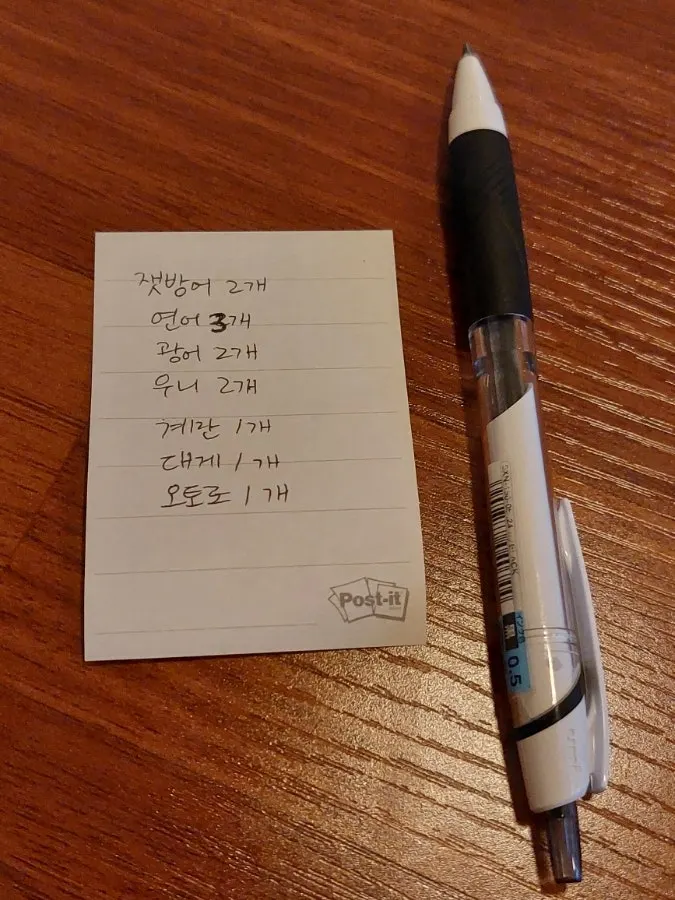 잿방어 2개
연어 3개
광어 2개
우니 2개
계란 1개
대게 1개
오토로 1개
Post-it
0.5